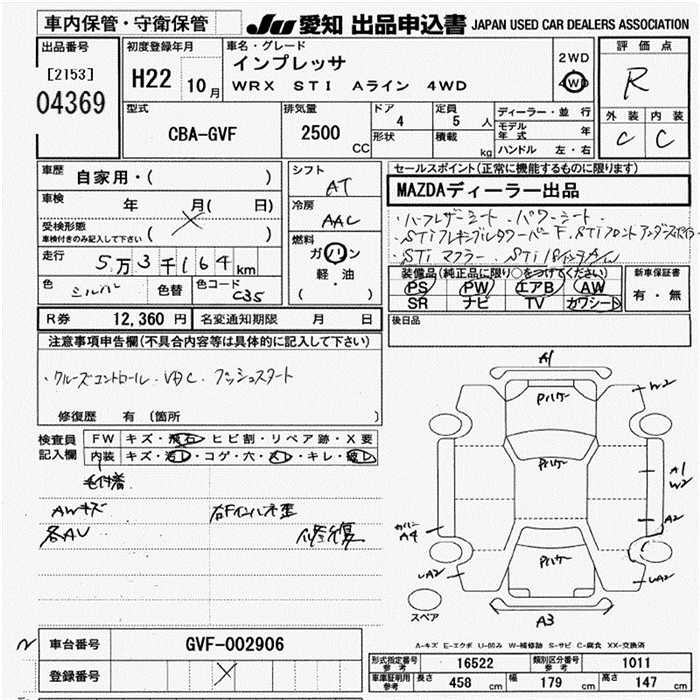 車内保管・守衛保管
JU 愛知 出品申込書 JAPAN USED CAR DEALERS ASSOCIATION
出品番号 [2153] 04369
初度登録年月 H22 10月
車名・グレード インプレッサ
WRX STI Aライン 4WD
2WD 4WD
評価点 R
外装 内装
C C
型式 CBA-GVF
排気量 2500 CC
ドア 4 形状
定員 5 人 積載 kg
ディーラー・並 行
モデル年式 年
ハンドル 左・右
車歴 自家用・( )
車検 年 月( 日)
受検形態 車検付きのみ記入して下さい ( )
走行 5万3千164km
色 シルバー 色替 色コード C35
シフト AT
冷房 AAC
燃料 ガソリン 軽・油 ( )
セールスポイント(正常に機能するものに限ります)
MAZDAディーラー出品
・ハーフレザーシート ・パワーシート
・STiフレキシブルタワーバーF ・STiフロントアンダースポイラー
・STiマフラー
装備品(純正品に限り○をつけてください)
PS PW エアB AW
SR ナビ TV カワシート
新車保証書 有・無
R券 12,360 円 名変通知期限 月 日
後日品
注意事項申告欄(不具合内容等は具体的に記入して下さい)
・クルーズコントロール ・VDC ・プッシュスタート
修復歴 有 (箇所 )
検査員記入欄
FW キズ・飛石・ヒビ割・リペア跡・X要
内装 キズ・汚レ・コゲ・穴・スレ・キレ・破レ
毛付着
AWキズ 右Fインパネ歪
各AU 修復
A1
Pハケー
W2
Pハケー
A1
W2
A2
カバーA4
Pハケー
UA2
UA2
A3
スペア
A-キズ E-エクボ U-凹み W-補修跡 S-サビ C-腐食 XX-交換済
車台番号 GVF-002906
登録番号
形式指定番号 参考 16522 類別区分番号 参考 1011
車庫証明用 参考 長さ 458 cm 幅 179 cm 高さ 147 cm